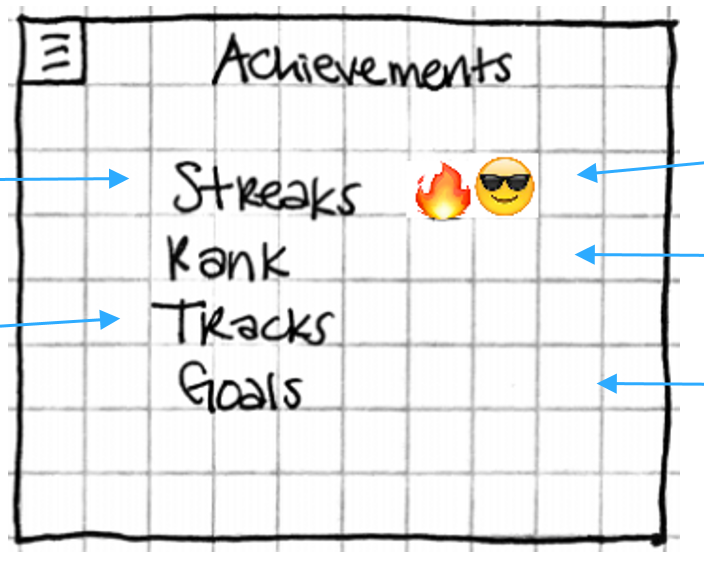 Achievements
Streaks 🔥😎
Rank
Tracks
Goals